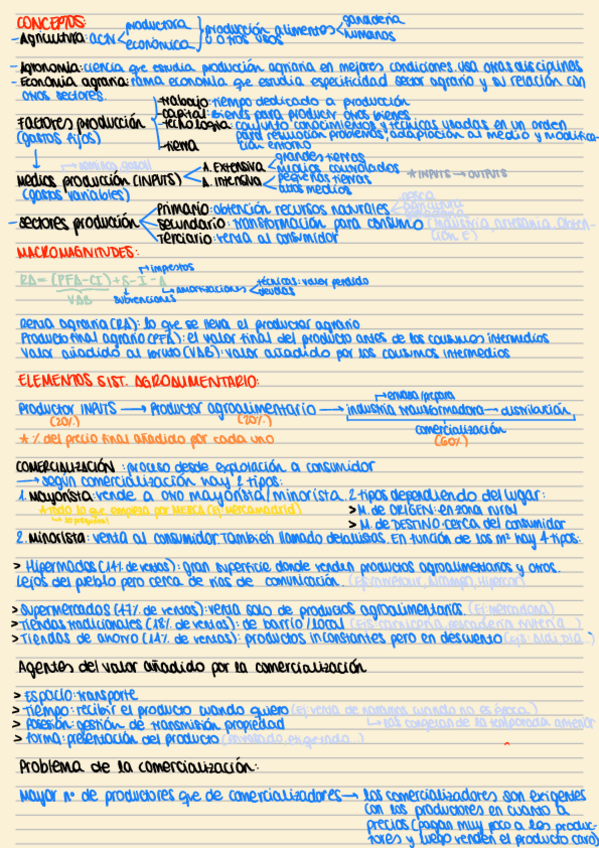 CONCEPTOS:
- Agricultura: acn productora } producción alimentos ganadería
económica o otros usos humanos
- Agronomia: ciencia que estudia producción agraria en mejores condiciones. usa otras disciplinas
- Economia agraria: rama economía que estudia especificidad sector agrario y su relación con
otros sectores.
Factores producción
(gastos fijos)
trabajo: tiempo dedicado a producción
capital: bienes para producir otros bienes
tecnologia: conjunto conocimientos y técnicas usadas en un orden
para resolución problemas, adaptación al medio y modifica-
ción entorno
tierra
semilla, gasoil
Medios producción (INPUTS)
(gastos variables)
A. Extensiva grandes tierras
medios controlados
A. intensiva pequeñas tierras
altos medios
* INPUTS → OUTPUTS
- sectores producción
Primario: obtención recursos naturales pesca
agricultura
ganadería
secundario: transformación para consumo (industria artesania obten-
ción e)
Terciario: venta al consumidor
MACROMAGNITUDES:
RA = (PFA-CI) + S - I - A
VAB
impuestos
subvenciones
amortizaciones técnicas: valor perdido
deudas
Renta agraria (RA): lo que se lleva el productor agrario
Producto final agrario (PFA): el valor final del producto antes de los consumos intermedios
Valor añadido al bruto (VAB): valor añadido por los consumos intermedios
ELEMENTOS SIST. AGROALIMENTARIO:
envasa/prepara
Productor INPUTS → Productor agroalimentario → industria transformadora → distribución
(20%) (20%) comercialización
(60%)
* % del precio final añadido por cada uno
COMERCIALIZACIÓN: proceso desde explotación a consumidor
→ según comercialización hay 2 tipos:
1. Mayorista: vende a otro mayorista/minorista. 2 tipos dependiendo del lugar:
* Todo lo que empieza por MERCA (Ej: mercamadrid) > M. de ORIGEN: en zona rural
> M. de DESTINO: cerca del consumidor
2. Minorista: venta al consumidor. También llamado detallistas. En función de los m² hay 4 tipos:
> Hipermercados (14% de ventas): gran superficie donde venden productos agroalimentarios y otros.
Lejos del pueblo pero cerca de vías de comunicación. (Ej: carrefour, Alcampo, Hipercor)
> Supermercados (47% de ventas): venta solo de productos agroalimentarios. (Ej: mercadona)
> Tiendas tradicionales (18% de ventas): de barrio/local (Ejs: carnicería, pescadería, frutería )
> Tiendas de ahorro (14% de ventas): productos inconstantes pero en descuento (Ejs: Aldi, Dia )
Agentes del valor añadido por la comercialización
> Espacio: transporte
> Tiempo: recibir el producto cuando quiero (Ej: venta de naranjas cuando no es época)
las congelan de la temporada anterior
> Posesión: gestión de transmisión propiedad
> Forma: presentación del producto (envasado, etiquetado )
Problema de la comercialización:
Mayor nº de productores que de comercializadores → los comercializadores son exigentes
con los productores en cuanto a
precios (pagan muy poco a los produc-
tores y luego venden el producto caro)